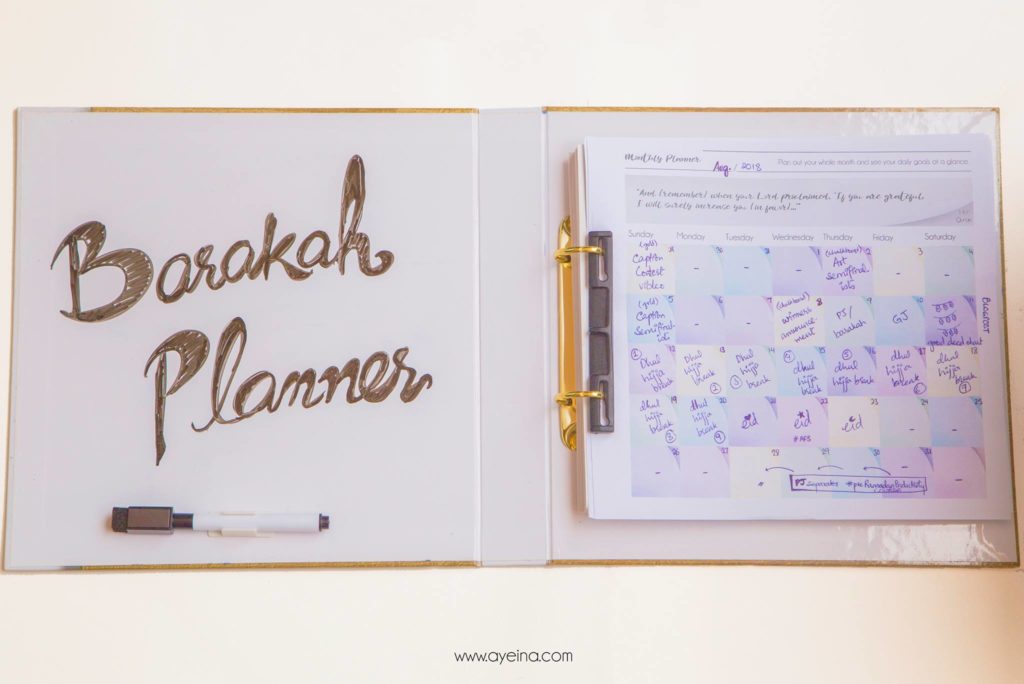 Barakah
Planner
Monthly Planner
Aug. / 2018
Plan out your whole month and see your daily goals at a glance.
"And (remember) when your Lord proclaimed, 'If you are grateful,
I will surely increase you (in favor)..."
Quran
Sunday Monday Tuesday Wednesday Thursday Friday Saturday
(gold) Caption Contest video
29
-
-
-
(rainbows) Art semifinalists
2
-
3
-
4
(gold) Caption Semifinalists
5
-
6
-
7
winners announcement
8
PJ/ barakah
9
GJ
10
good deed chart
11
BLOGPOST
① Dhul hijja break
12
Dhul hijja break ②
13
Dhul hijja break ③
14
④ dhul hijja break
15
⑤ dhul hijja break
16
dhul hijja break ⑥
17
dhul hijja break ⑦
18
dhul hijja break ⑧
19
dhul hijja break ⑨
20
eid
21
eid #AFS
22
eid
23
-
24
-
25
-
26
-
27
28
29
30
-
31
-
PJ separates #preRamadanProductivity
www.ayeina.com